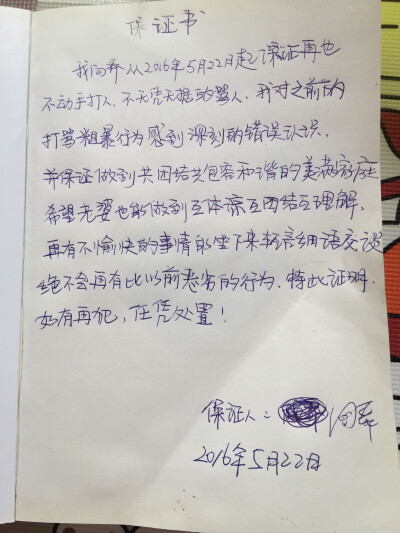 保证书
我向 从2016年5月22日起保证再也
不动手打人、不无凭无据的骂人、我对之前的
打骂粗暴行为感到深刻的错误认识、
并保证做到共团结共包容和谐的美满家庭
希望老婆也能做到互体谅互团结互理解、
再有不愉快的事情能坐下来轻言细语交谈
绝不会再有比以前恶劣的行为、特此证明、
如有再犯，任凭处置！
保证人：
2016年5月22日